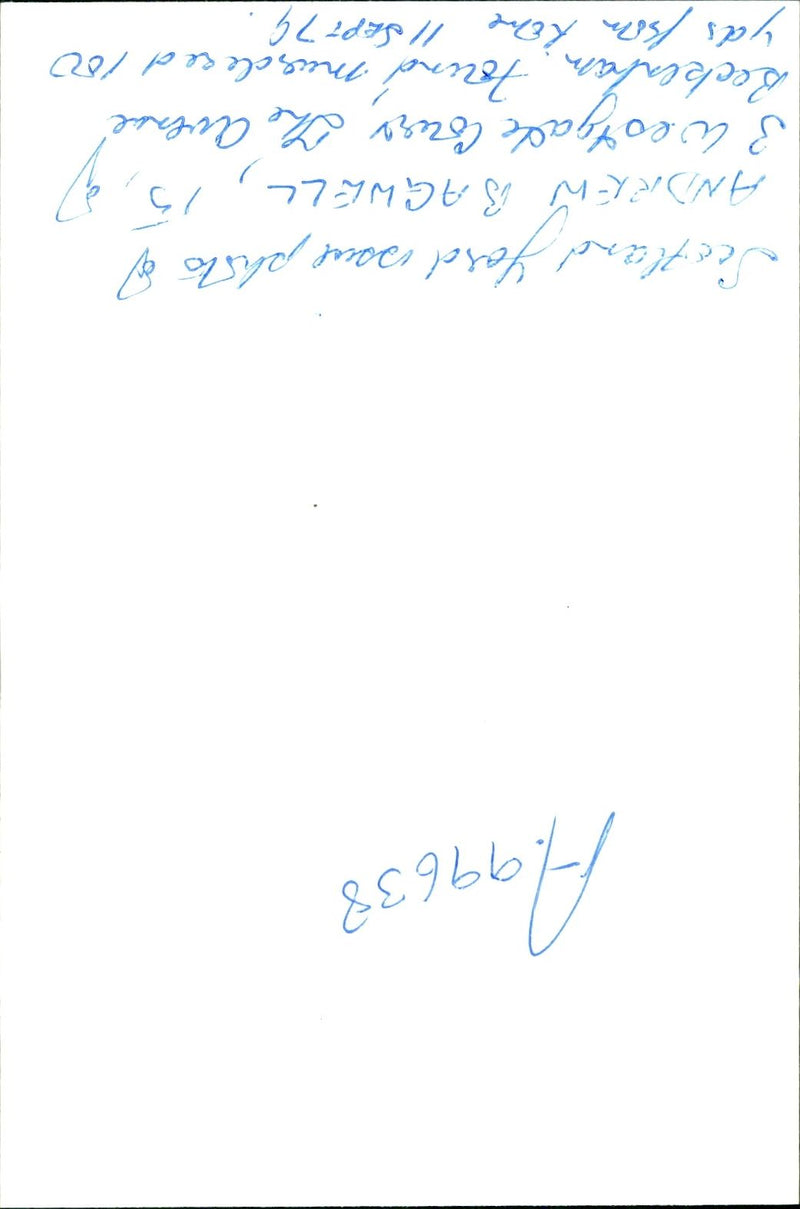 A.99638
Scotland Yard issue photo of
ANDREW BAGWELL, 15, of
3 Westgate Court The Avenue
Beckenham, found murdered 100
yds from home 11 SEPT 79.